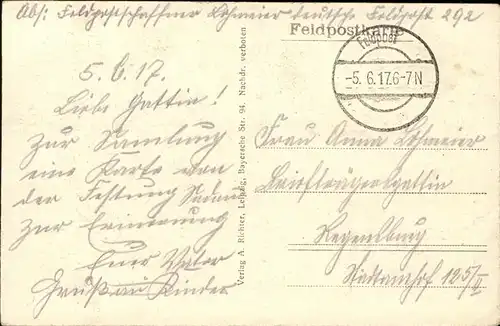 Abs: Feldpostschaffner Löhmeier deutsche Feldpost 292
Feldpostkarte
Feldpost
-5.6.17.6-7N
5.6.17.
Liebe Gattin!
Zur Samlung
eine Karte von
der Festung Sedan
zur Erinnerung
Euer Vater
Gruß an Kinder
Verlag A. Richter, Leipzig, Bayersche Str. 94. Nachdr. verboten
Frau Anna Löhmeier
Briefträgersgattin
Regensburg
Stadtamhof 125/II